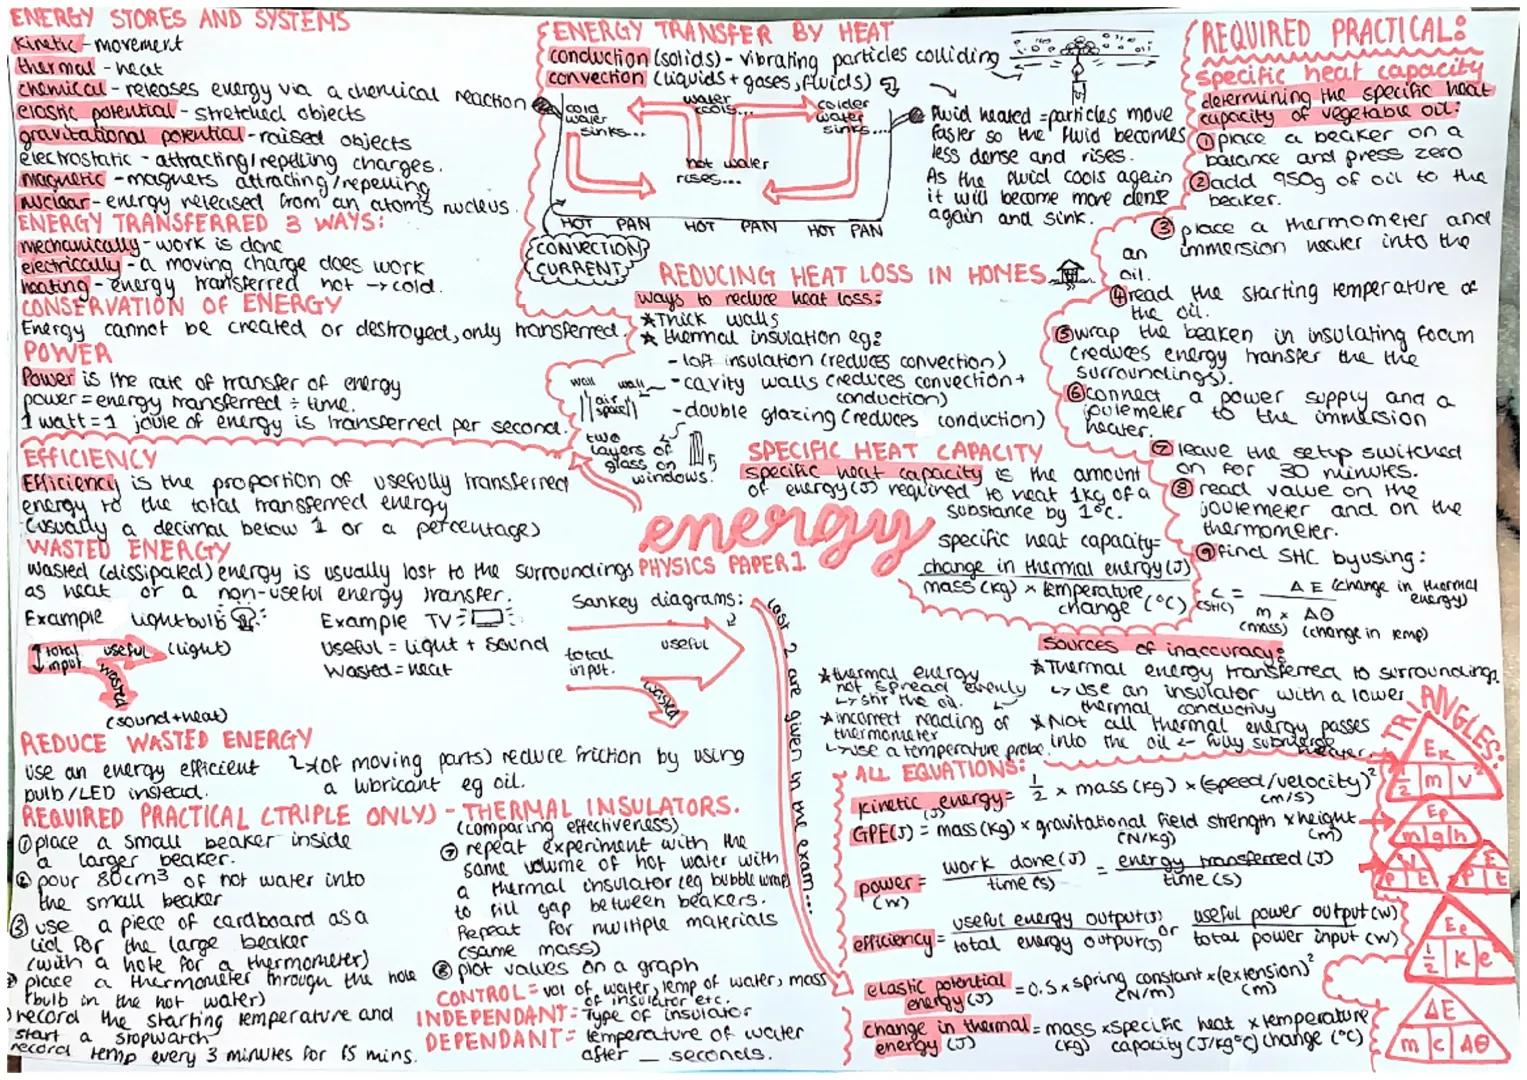 ENERGY STORES AND SYSTEMS
kinetic - movement
thermal - heat
chemical - releases energy via a chemical reaction
elastic potential - stretched objects
gravitational potential - raised objects
electrostatic - attracting/repelling charges.
magnetic - magnets attracting/repelling
nuclear - energy released from an atoms nucleus.
ENERGY TRANSFERRED 3 WAYS:
mechanically - work is done
electrically - a moving charge does work
heating - energy transferred hot → cold.
CONSERVATION OF ENERGY
Energy cannot be created or destroyed, only transferred.
POWER
Power is the rate of transfer of energy
power = energy transferred ÷ time.
1 watt = 1 joule of energy is transferred per second.
EFFICIENCY
Efficiency is the proportion of usefully transferred
energy to the total transferred energy
(usually a decimal below 1 or a percentage)
WASTED ENERGY
Wasted (dissipated) energy is usually lost to the surroundings
as heat or a non-useful energy transfer.
Example lightbulb
total input
useful (light)
wasted
(sound + heat)
Example TV =
Useful = light + sound
Wasted = heat
Sankey diagrams:
total input.
useful
wasted
REDUCE WASTED ENERGY
use an energy efficient
bulb/LED instead.
(of moving parts) reduce friction by using
a lubricant eg oil.
REQUIRED PRACTICAL (TRIPLE ONLY) - THERMAL INSULATORS.
(comparing effectiveness)
① place a small beaker inside
a larger beaker.
② pour 80cm³ of hot water into
the small beaker
③ use a piece of cardboard as a
lid for the large beaker
(with a hole for a thermometer)
place a thermometer through the hole
(bulb in the hot water)
record the starting temperature and
start a stopwatch
record temp every 3 minutes for 15 mins.
⑦ repeat experiment with the
same volume of hot water with
a thermal insulator (eg bubble wrap)
to fill gap between beakers.
Repeat for multiple materials
(same mass)
⑧ plot values on a graph
CONTROL = vol of water, temp of water, mass
of insulator etc.
INDEPENDANT = Type of insulator
DEPENDANT = temperature of water
after _ seconds.
ENERGY TRANSFER BY HEAT
conduction (solids) - vibrating particles colliding
convection (liquids + gases, fluids)
cold water sinks...
water cools...
colder water sinks...
hot water rises...
HOT PAN HOT PAN HOT PAN
CONVECTION CURRENT
Fluid heated = particles move
faster so the fluid becomes
less dense and rises.
As the fluid cools again
it will become more dense
again and sink.
REDUCING HEAT LOSS IN HOMES
ways to reduce heat loss:
* Thick walls
* thermal insulation eg:
- loft insulation (reduces convection)
- cavity walls (reduces convection +
conduction)
- double glazing (reduces conduction)
wall wall
air space
two layers of glass on windows.
SPECIFIC HEAT CAPACITY
specific heat capacity is the amount
of energy (J) required to heat 1kg of a
substance by 1°C.
specific heat capacity =
change in thermal energy (J)
mass (kg) × temperature change (°C)
energy
PHYSICS PAPER 1
REQUIRED PRACTICAL:
specific heat capacity
determining the specific heat
capacity of vegetable oil:
① place a beaker on a
balance and press zero
② add 950g of oil to the
beaker.
③ place a thermometer and
an immersion heater into the
oil.
④ read the starting temperature of
the oil.
⑤ wrap the beaken in insulating foam
(reduces energy transfer the the
surroundings).
⑥ connect a power supply and a
joulemeter to the immersion
heater.
⑦ leave the setup switched
on for 30 minutes.
⑧ read value on the
joulemeter and on the
thermometer.
⑨ find SHC by using:
c = ΔE (change in thermal energy)
(SHC) m × Δθ
(mass) (change in temp)
Sources of inaccuracy:
* thermal energy
not spread evenly
↳ stir the oil.
* incorrect reading of
thermometer
↳ use a temperature probe.
* Thermal energy transferred to surroundings
↳ use an insulator with a lower
thermal conductivy
* Not all thermal energy passes
into the oil ← fully submerge
heater
last 2 are given in the exam...
ALL EQUATIONS:
kinetic energy = 1/2 × mass (kg) × (speed/velocity)²
(J) (m/s)
GPE (J) = mass (kg) × gravitational field strength × height
(N/kg) (m)
power = work done (J) = energy transferred (J)
(W) time (s) time (s)
efficiency = useful energy output (J) or useful power output (W)
total energy output (J) total power input (W)
elastic potential energy (J) = 0.5 × spring constant × (extension)²
(N/m) (m)
change in thermal energy (J) = mass × specific heat × temperature
(kg) capacity (J/kg°C) change (°C)
TRIANGLES:
Ek
1/2 m v²
Ep
m g h
P t
E
P t
Ee
1/2 k e²
ΔE
m c Δθ